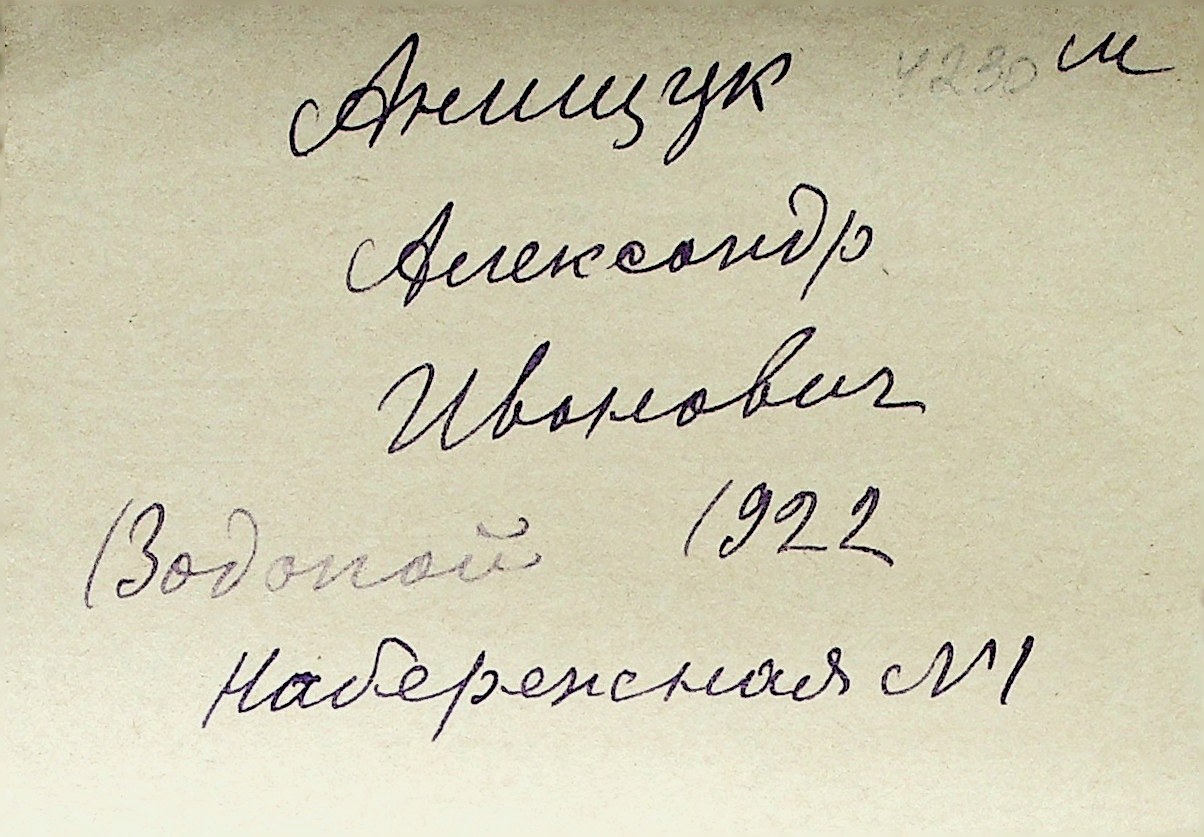 Анищук 4230 м
Александр
Иванович
(Водопой 1922
Набережная №1